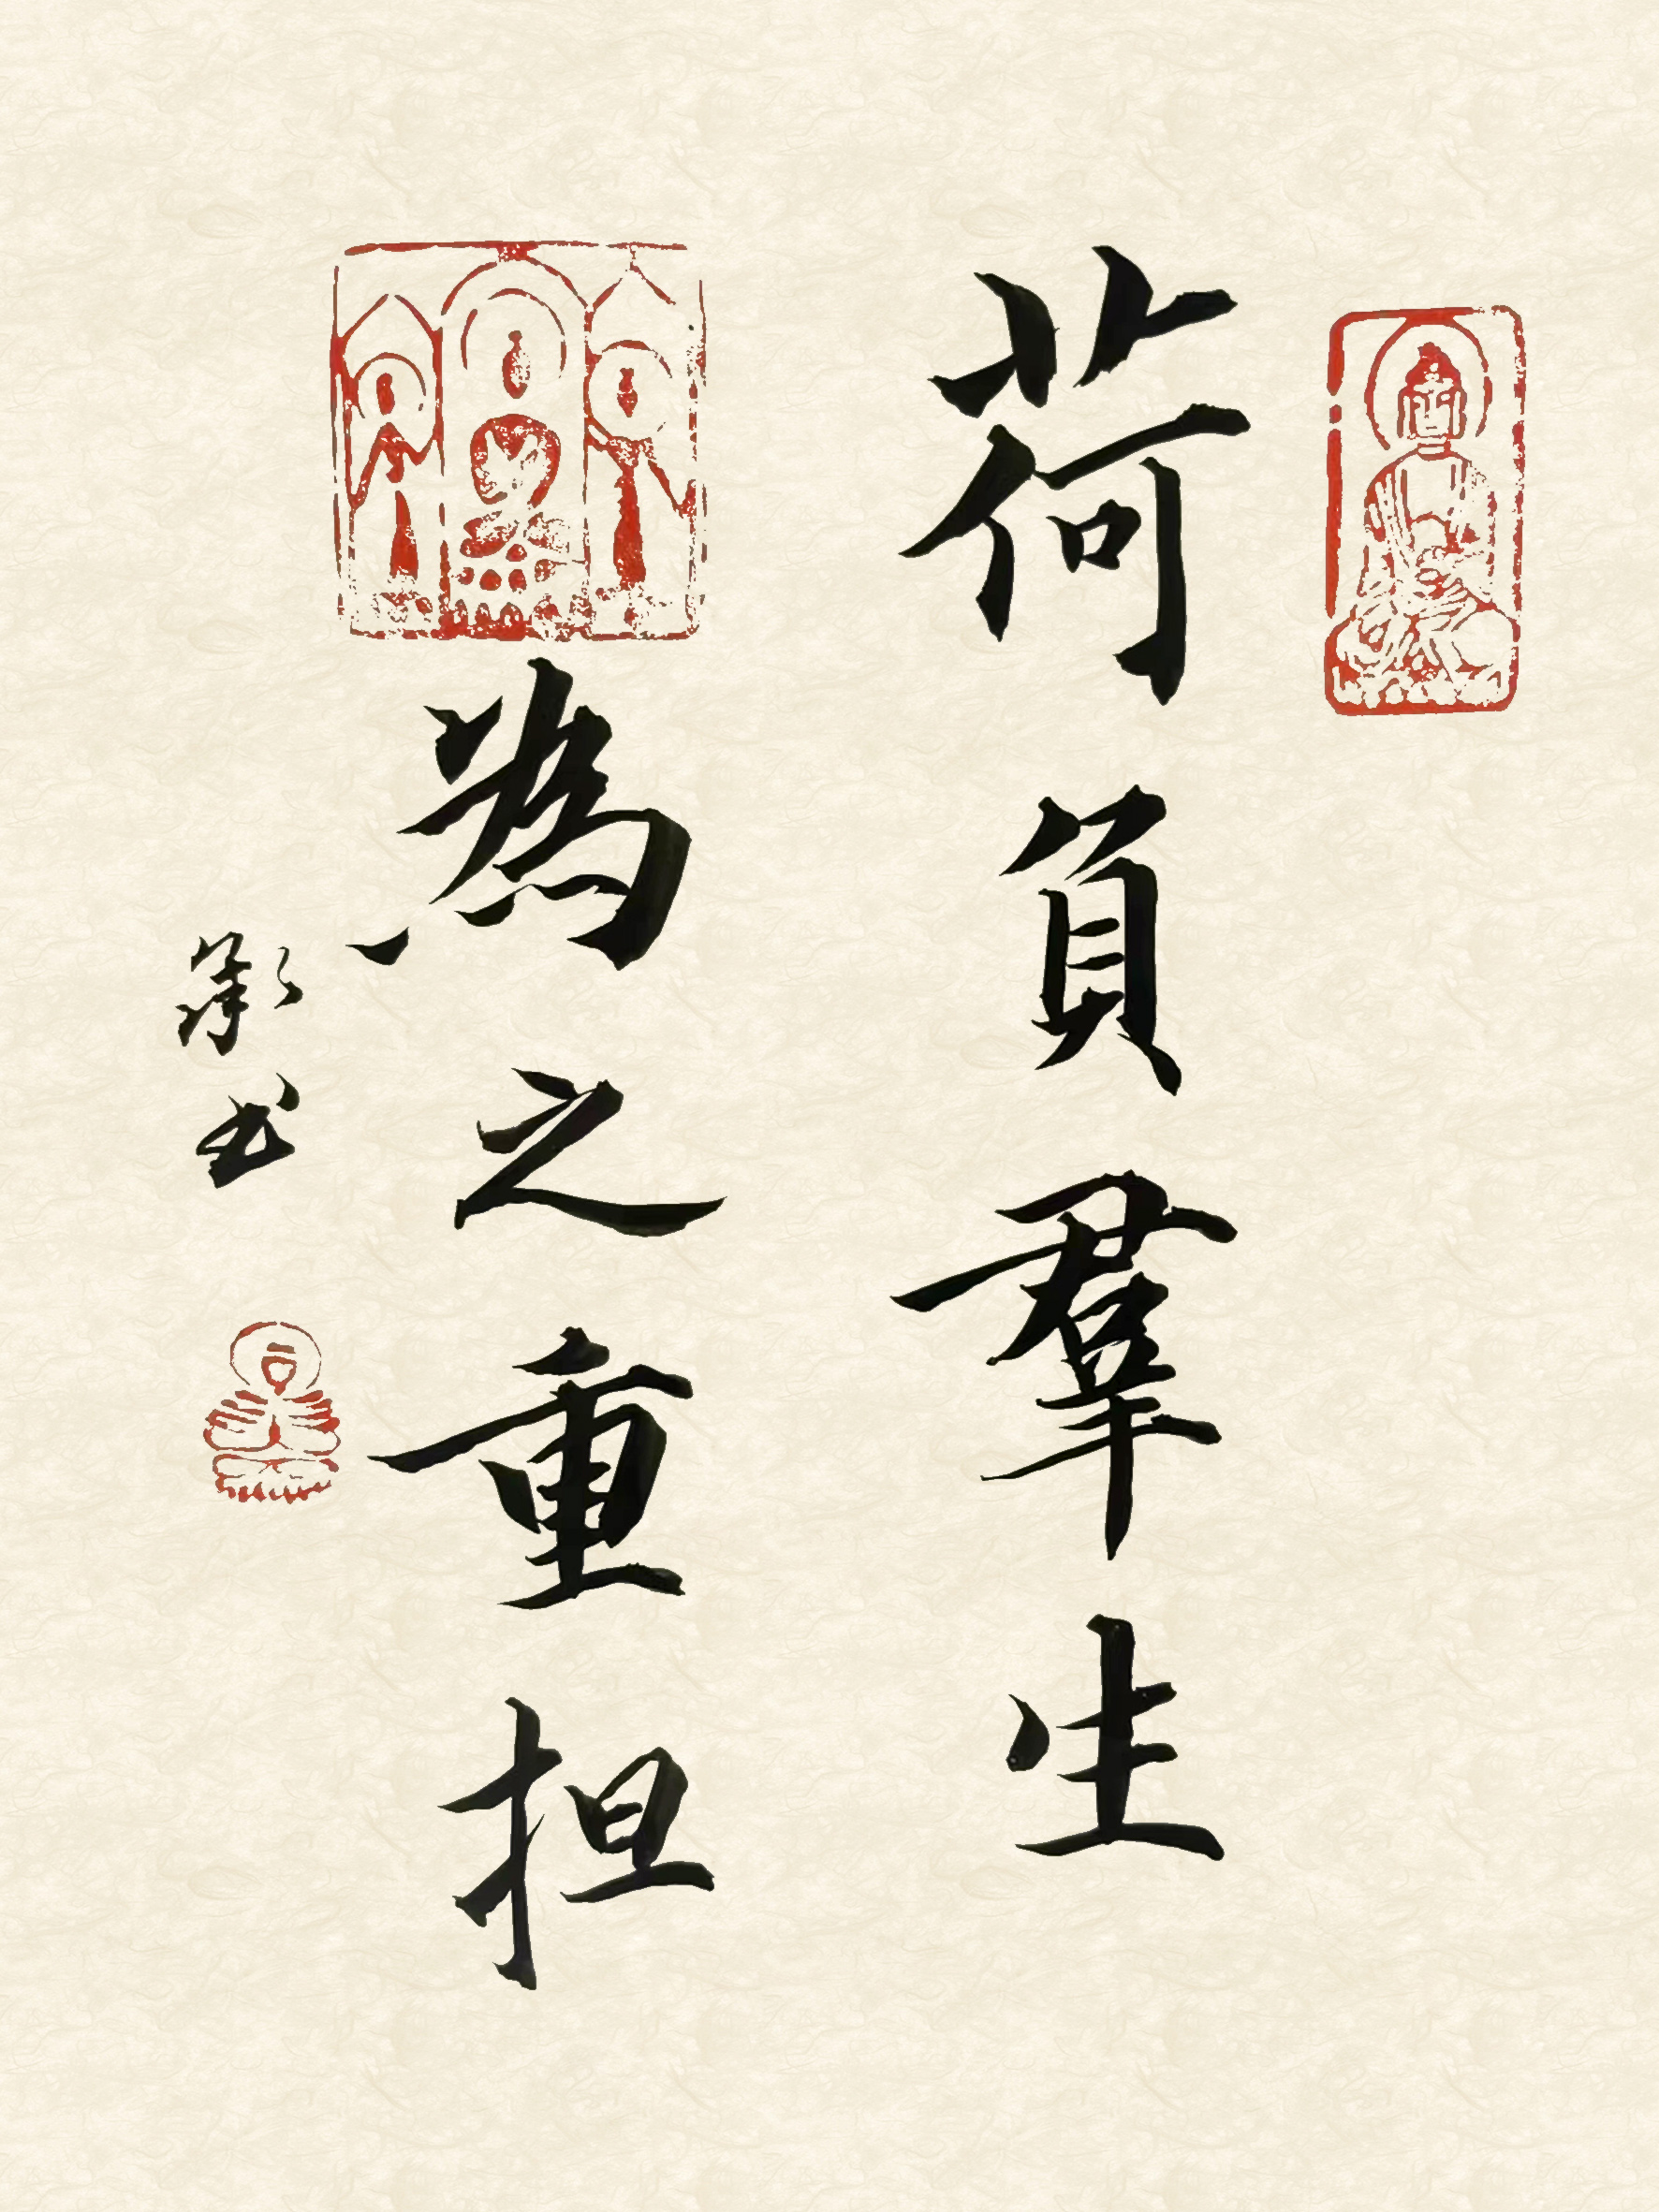 荷負羣生
為之重担
承书